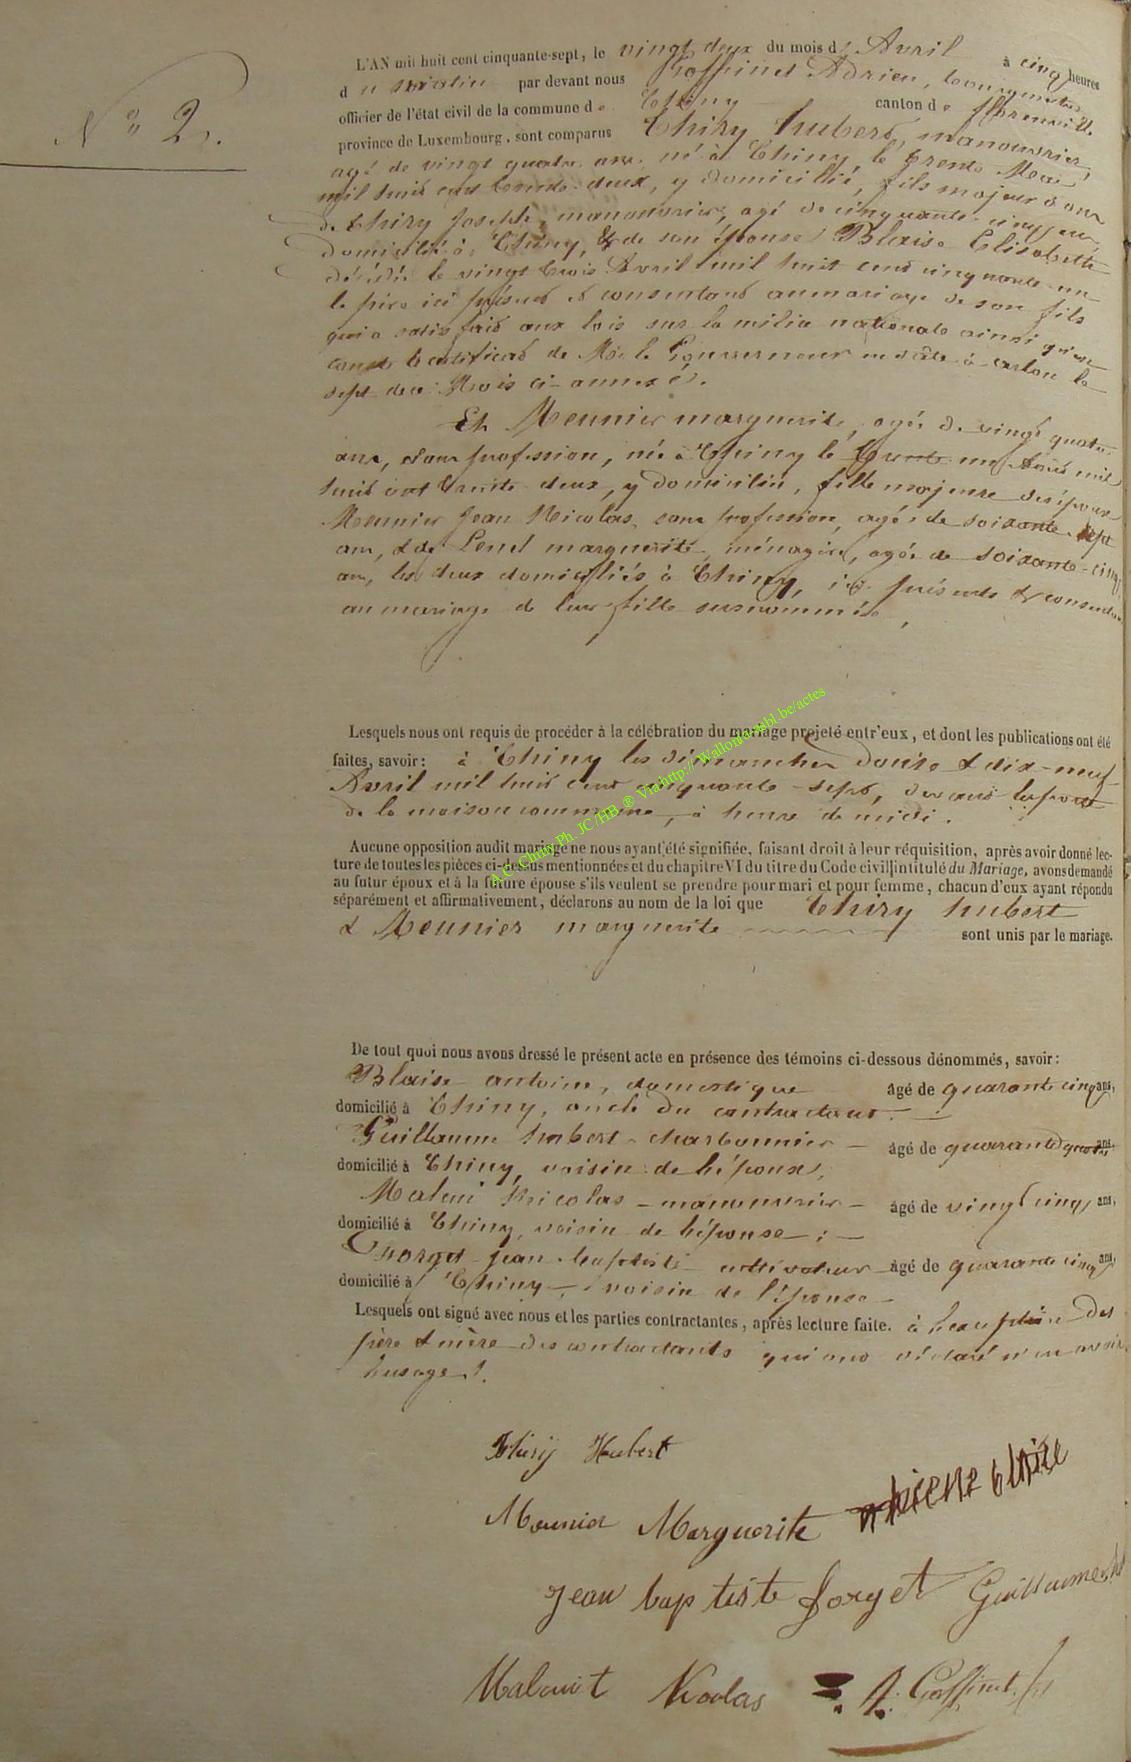 N° 2.
L'AN mil huit cent cinquante-sept, le vingt deux du mois d'Avril à cinq heures
du matin par devant nous Goffinet Adrien, bourgmestre
officier de l'état civil de la commune de Chiny canton de Florenville
province de Luxembourg, sont comparus Thiry hubert, manouvrier,
agé de vingt quatre ans né à Chiny, le trente Mai
mil huit cent trente-deux, y domicilié, fils majeur
de Thiry Joseph, manouvrier, agé de cinquante-cinq ans
domicilié à Chiny, & de son épouse Blaise Elisabette
décédée le vingt trois Avril mil huit cent cinquante-un
le père ici présent et consentant au mariage de son fils
qui a satisfait aux lois sur la milice nationale ainsi qu'en
conste le certificat de Mr. le Gouverneur en date à arlon le
sept de ce Mois ci-annexé.
Et Meunier marguerite, agée de vingt quatre
ans, sans profession, née à Chiny le trente un Août mil
huit cent trente deux, y domiciliée, fille majeure des époux
Meunier Jean Nicolas, sans profession, agé de soixante-sept
ans, & de marguerite, ménagère, agée de soixante-cinq
ans, les deux domiciliés à Chiny, ici présents & consentans
au mariage de leur fille susnommée,
Lesquels nous ont requis de procéder à la célébration du mariage projeté entr'eux, et dont les publications ont été
faites, savoir: à Chiny les dimanches douze & dix-neuf
Avril mil huit cent cinquante-sept, devant la porte
de la maison commune, à heure de midi.
Aucune opposition audit mariage ne nous ayant été signifiée, faisant droit à leur réquisition, après avoir donné lec-
ture de toutes les pièces ci-dessus mentionnées et du chapitre VI du titre du Code civil intitulé du Mariage, avons demandé
au futur époux et à la future épouse s'ils veulent se prendre pour mari et pour femme, chacun d'eux ayant répondu
séparément et affirmativement, déclarons au nom de la loi que Thiry hubert
& Meunier marguerite sont unis par le mariage.
De tout quoi nous avons dressé le présent acte en présence des témoins ci-dessous dénommés, savoir:
Blaise antoine, domestique âgé de quarante cinq ans,
domicilié à Chiny, oncle du contractant.
Guillaume hubert - charbonnier - âgé de quarante quatre ans
domicilié à Chiny, voisin de l'épouse,
Malcui Nicolas - manouvrier - âgé de vingt cinq ans,
domicilié à Chiny, voisin de l'épouse;
Jean-baptiste - cultivateur - âgé de quarante cinq ans
domicilié à Chiny -, voisin de l'épouse -
Lesquels ont signé avec nous et les parties contractantes, après lecture faite. à l'exception des
père & mère des contractants qui ont déclaré n'en avoir
l'usage.
Thiry Hubert
Meunier Marguerite blaise
Jean baptiste forget Guillaume
Nicolas A. Goffinet
A.C. Chiny Ph. JC /HB ® Via http://Wallonia-asbl.be/actes